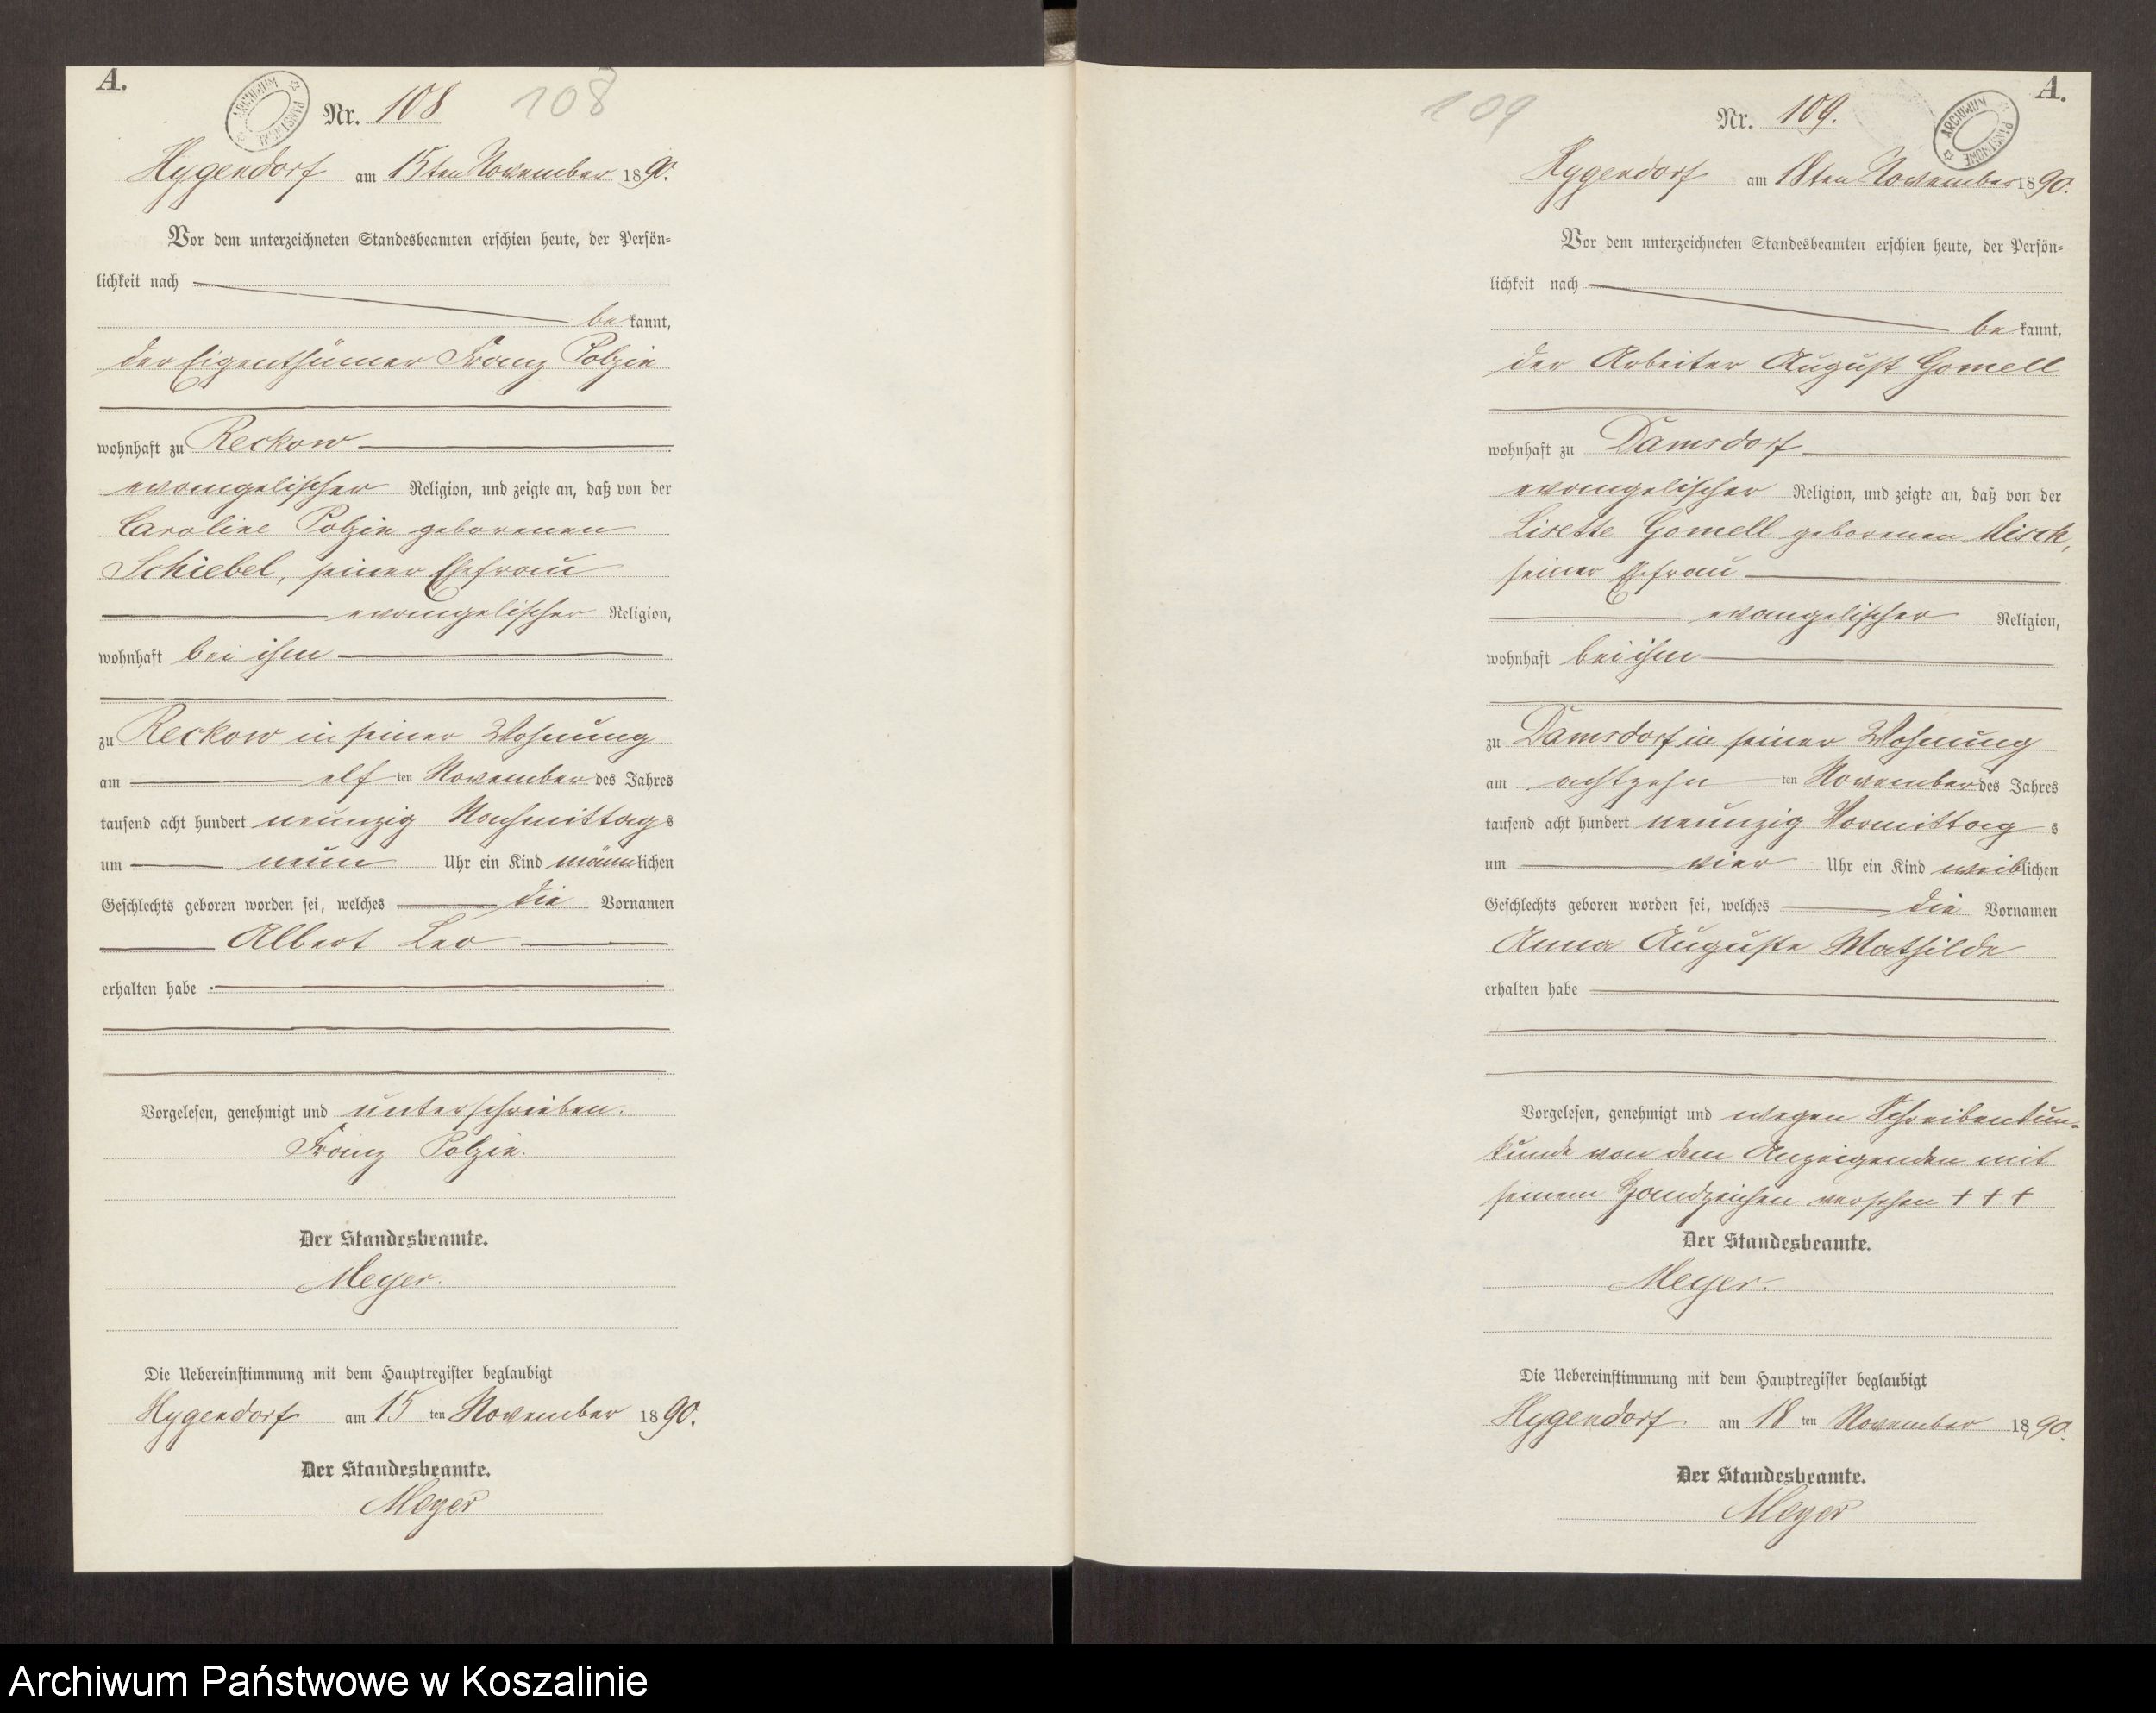 A.
ARCHIWUM PAŃSTWOWE
Nr. 108 108
Hygendorf am 15ten November 1890.
Vor dem unterzeichneten Standesbeamten erschien heute, der Persön-
lichkeit nach
bekannt,
der Eigenthümer Franz Polzin
wohnhaft zu Reckow
evangelischer Religion, und zeigte an, daß von der
Caroline Polzin geborenen
Schiebel, seiner Ehefrau
evangelischer Religion,
wohnhaft bei ihm
zu Reckow in seiner Wohnung
am elften November des Jahres
tausend acht hundert neunzig Nachmittags
um neun Uhr ein Kind männlichen
Geschlechts geboren worden sei, welches die Vornamen
Albert Leo
erhalten habe.
Vorgelesen, genehmigt und unterschrieben.
Franz Polzin.
Der Standesbeamte.
Meyer.
Die Uebereinstimmung mit dem Hauptregister beglaubigt
Hygendorf am 15ten November 1890.
Der Standesbeamte.
Meyer
A.
ARCHIWUM PAŃSTWOWE
109 Nr. 109.
Hygendorf am 18ten November 1890.
Vor dem unterzeichneten Standesbeamten erschien heute, der Persön-
lichkeit nach
bekannt,
der Arbeiter August Gomell
wohnhaft zu Damsdorf
evangelischer Religion, und zeigte an, daß von der
Lisette Gomell geborenen Misch,
seiner Ehefrau
evangelischer Religion,
wohnhaft bei ihm
zu Damsdorf in seiner Wohnung
am achtzehnten November des Jahres
tausend acht hundert neunzig Vormittags
um vier Uhr ein Kind weiblichen
Geschlechts geboren worden sei, welches die Vornamen
Anna Auguste Mathilde
erhalten habe
Vorgelesen, genehmigt und wegen Schreibentun-
kunde von dem Anzeigenden mit
seinem Handzeichen versehen + + +
Der Standesbeamte.
Meyer.
Die Uebereinstimmung mit dem Hauptregister beglaubigt
Hygendorf am 18ten November 1890.
Der Standesbeamte.
Meyer
Archiwum Państwowe w Koszalinie